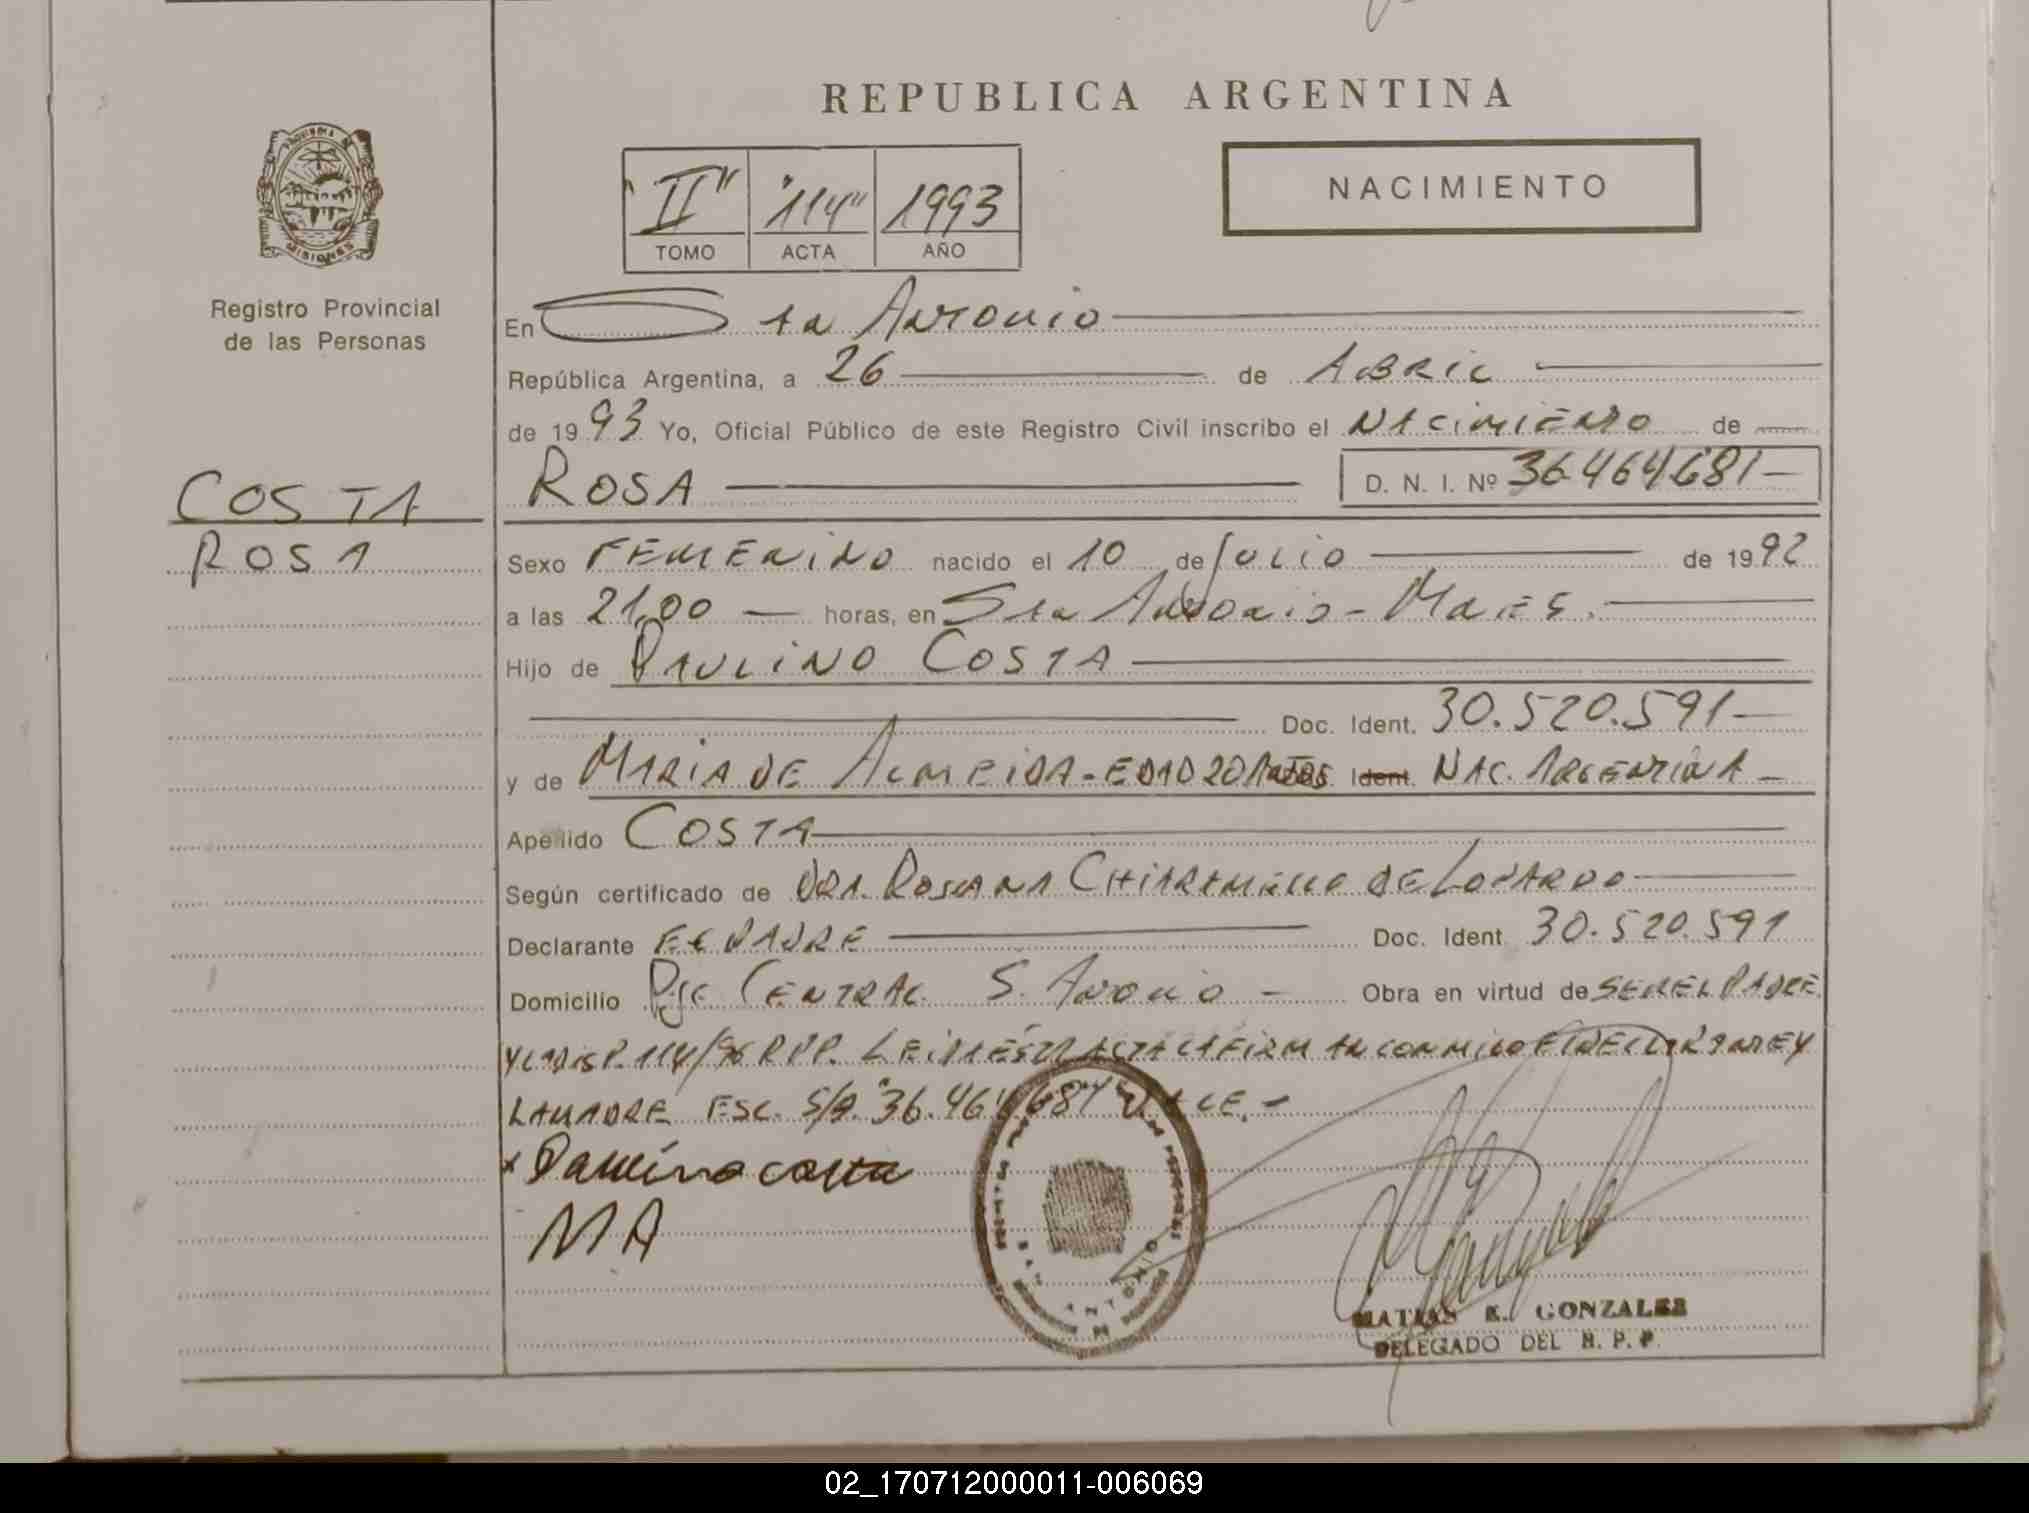 REPUBLICA ARGENTINA
NACIMIENTO
"II" "114" 1993
TOMO ACTA AÑO
PROVINCIA DE
MISIONES
Registro Provincial
de las Personas
COSTA
ROSA
En Sta Antonio
República Argentina, a 26 de ABRIL
de 1993 Yo, Oficial Público de este Registro Civil inscribo el NACIMIENTO de
ROSA D. N. I. Nº 36.464.681-
Sexo FEMENINO nacido el 10 de JULIO de 1992
a las 21,00 horas, en Sta Antonio - Mnes.
Hijo de PAULINO COSTA
Doc. Ident. 30.520.591-
y de MARIA DE ALMEIDA - EDAD 20 Años. Ident. NAC. ARGENTINA -
Apellido COSTA
Según certificado de DRA. ROSANA CHIARAMELLO DE LOVARDO
Declarante EL PADRE Doc. Ident. 30.520.591
Domicilio Pje CENTRAL S. Antonio - Obra en virtud de SER EL PADRE
Y LA DISP. 114/96 RPP. LEIDA ESTA ACTA LA FIRMAN CONMIGO EL DECLARANTE Y
LA MADRE ESC. S/R. "36.464.681" VALE.-
x Paulino costa
MA
ANTONIO
MATIAS E. GONZALEZ
DELEGADO DEL R. P. P.
02_170712000011-006069